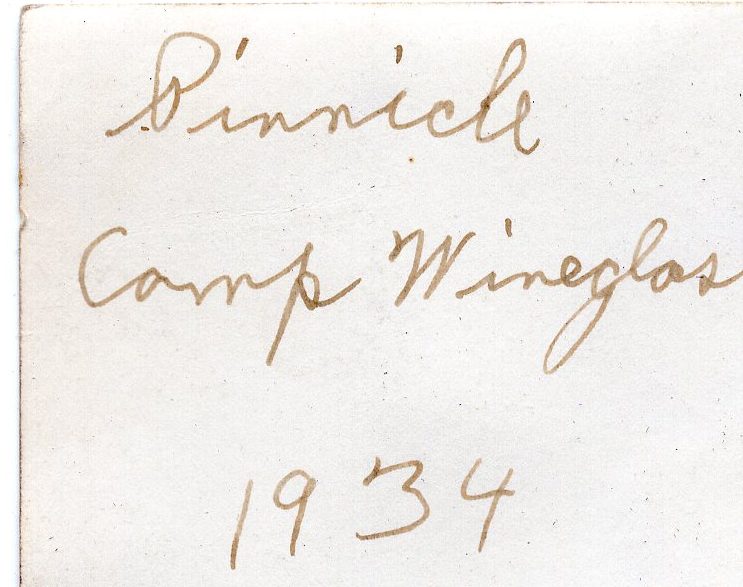 Pinnicle
Camp Wineglas
1934